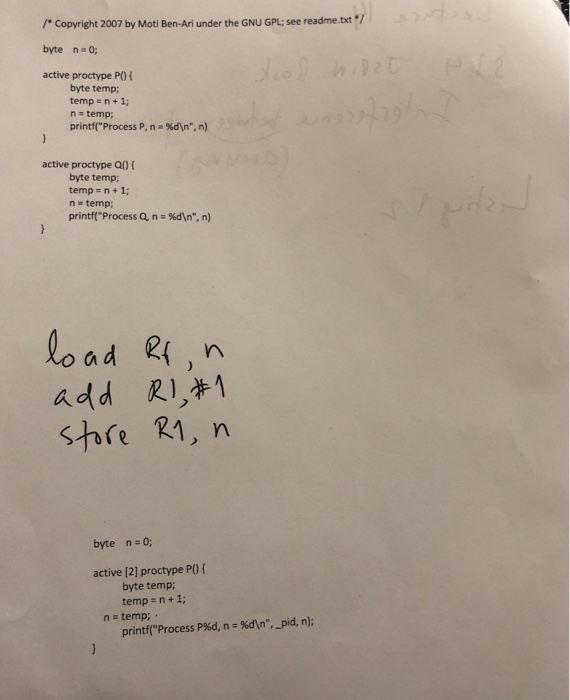 /* Copyright 2007 by Moti Ben-Ari under the GNU GPL; see readme.txt */
byte n = 0;
active proctype P() {
byte temp;
temp = n + 1;
n = temp;
printf("Process P, n = %d\n", n)
}
active proctype Q() {
byte temp;
temp = n + 1;
n = temp;
printf("Process Q, n = %d\n", n)
}
load R1, n
add R1, #1
store R1, n
byte n = 0;
active [2] proctype P() {
byte temp;
temp = n + 1;
n = temp;
printf("Process P%d, n = %d\n", _pid, n);
}